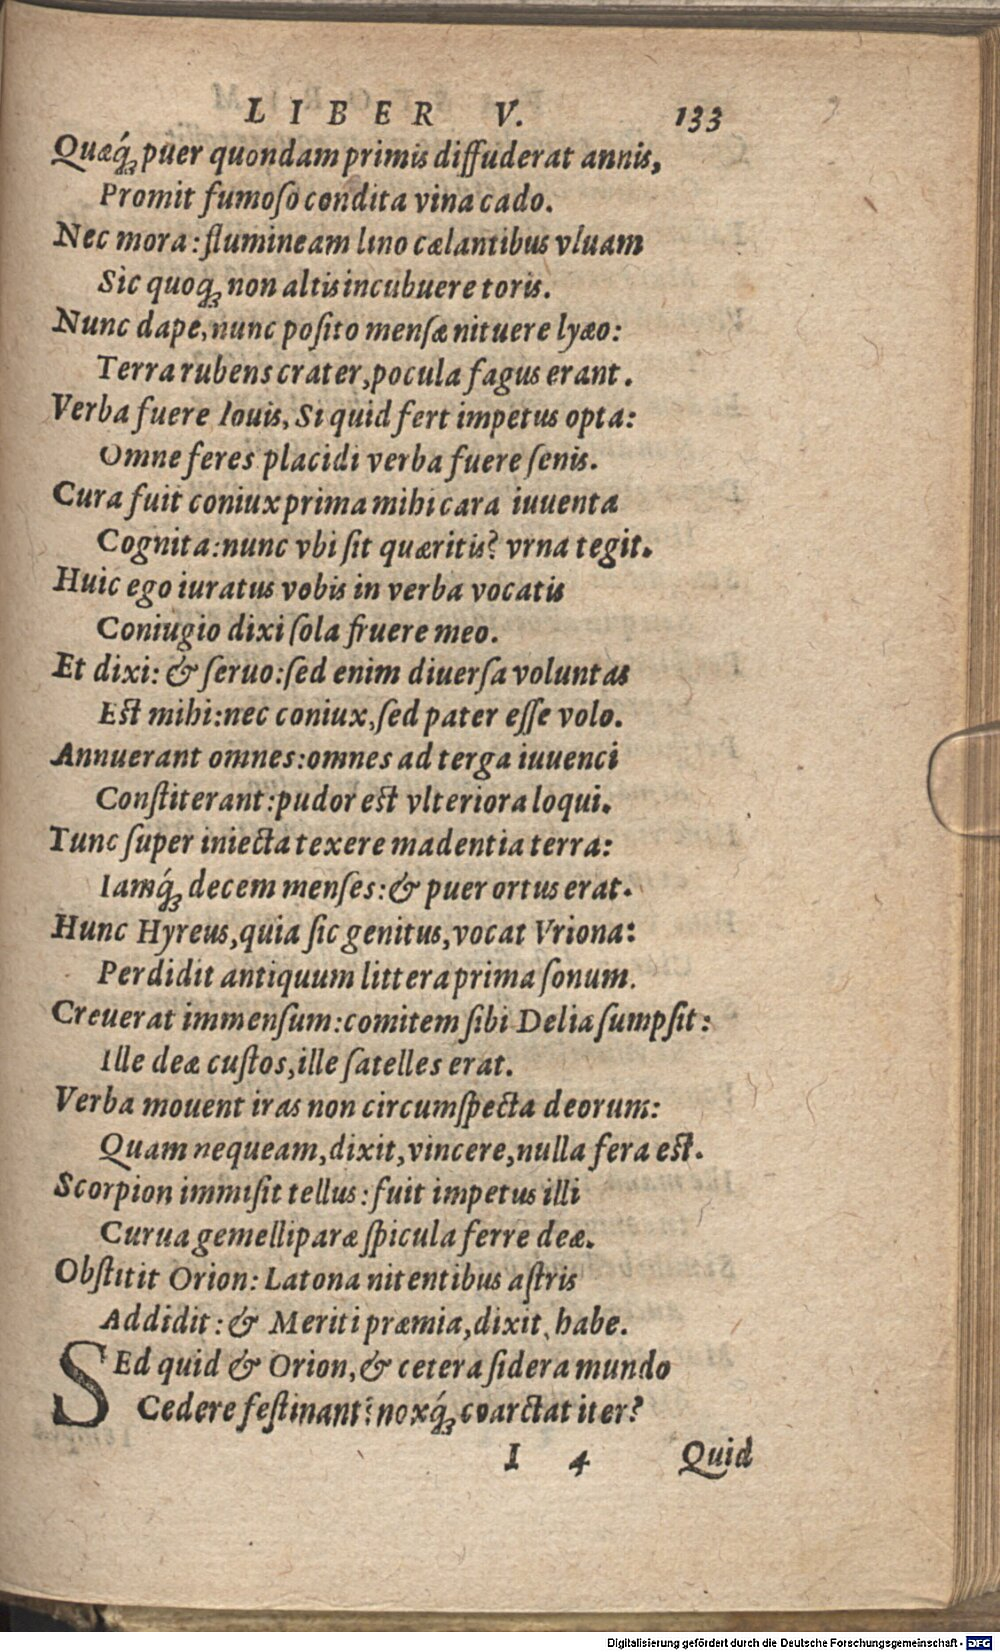 LIBER V. 133
Quæq́; puer quondam primis diffuderat annis,
Promit fumoſo condita vina cado.
Nec mora: flumineam lino cælantibus vluam
Sic quoq; non altis incubuere toris.
Nunc dape, nunc poſito menſæ nituere lyæo:
Terra rubens crater, pocula fagus erant.
Verba fuere Iouis, Si quid fert impetus opta:
Omne feres placidi verba fuere ſenis.
Cura fuit coniux prima mihi cara iuuenta
Cognita: nunc vbi ſit quæritis? vrna tegit.
Huic ego iuratus vobis in verba vocatis
Coniugio dixi ſola fruere meo.
Et dixi: & ſeruo: ſed enim diuerſa voluntas
Eſt mihi: nec coniux, ſed pater eſſe volo.
Annuerant omnes: omnes ad terga iuuenci
Conſtiterant: pudor eſt vlteriora loqui.
Tunc ſuper iniecta texere madentia terra:
Iamq́; decem menſes: & puer ortus erat.
Hunc Hyreus, quia ſic genitus, vocat Vriona:
Perdidit antiquum littera prima ſonum.
Creuerat immenſum: comitem ſibi Delia ſumpſit:
Ille deæ cuſtos, ille ſatelles erat.
Verba mouent iras non circumſpecta deorum:
Quam nequeam, dixit, vincere, nulla fera eſt.
Scorpion immiſit tellus: fuit impetus illi
Curua gemelliparæ ſpicula ferre deæ.
Obſtitit Orion: Latona nitentibus aſtris
Addidit: & Meriti præmia, dixit, habe.
SEd quid & Orion, & cetera ſidera mundo
Cedere feſtinant? noxq́; coarctat iter?
I 4 Quid
Digitalisierung gefördert durch die Deutsche Forschungsgemeinschaft - DFG